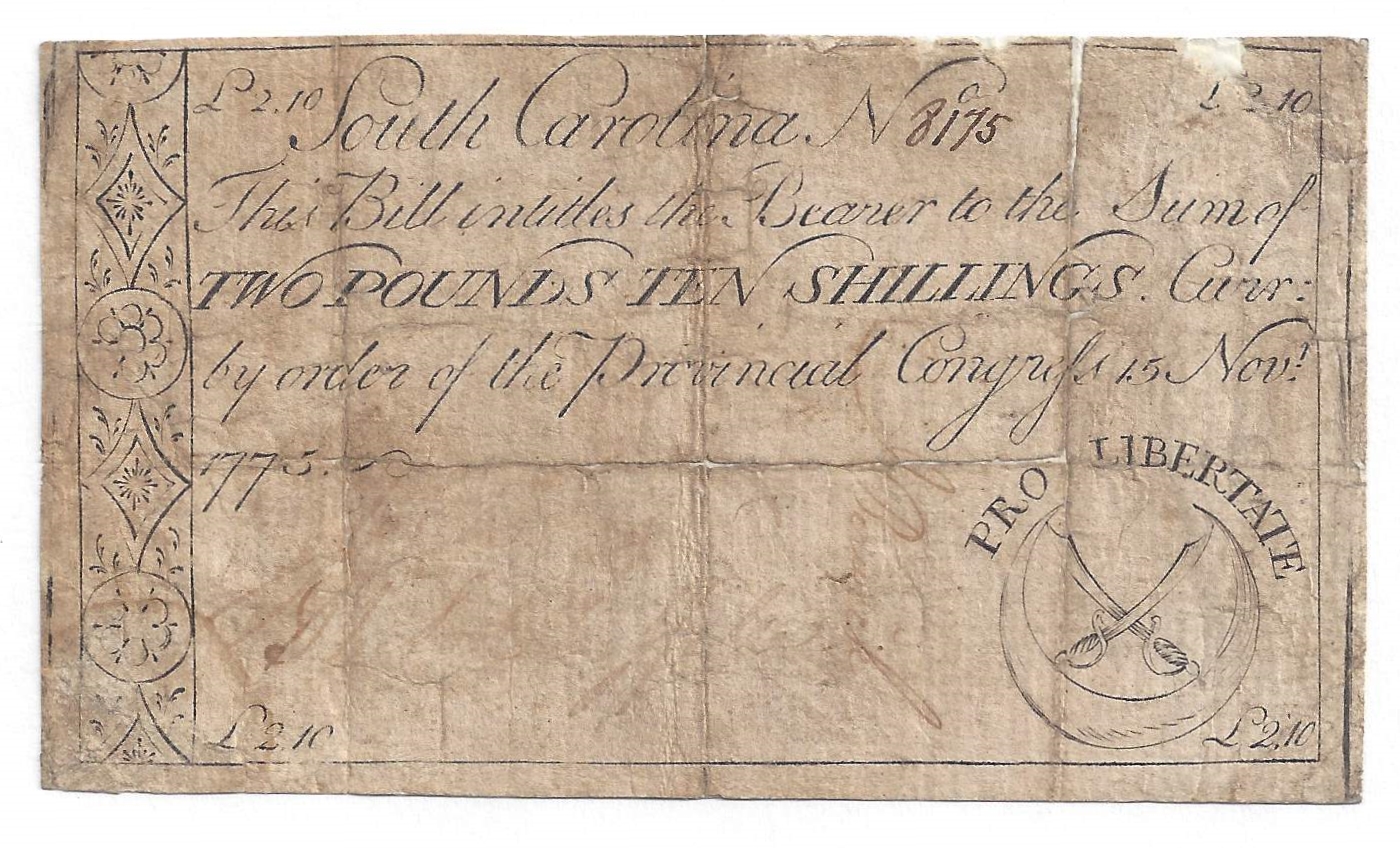 £2.10 South Carolina. No 8175 £2.10
This Bill intitles the Bearer to the Sum of
TWO POUNDS TEN SHILLINGS. Curr:
by order of the Provincial Congreſs 15 Novr.
1775.
PRO LIBERTATE
£2.10 £2.10